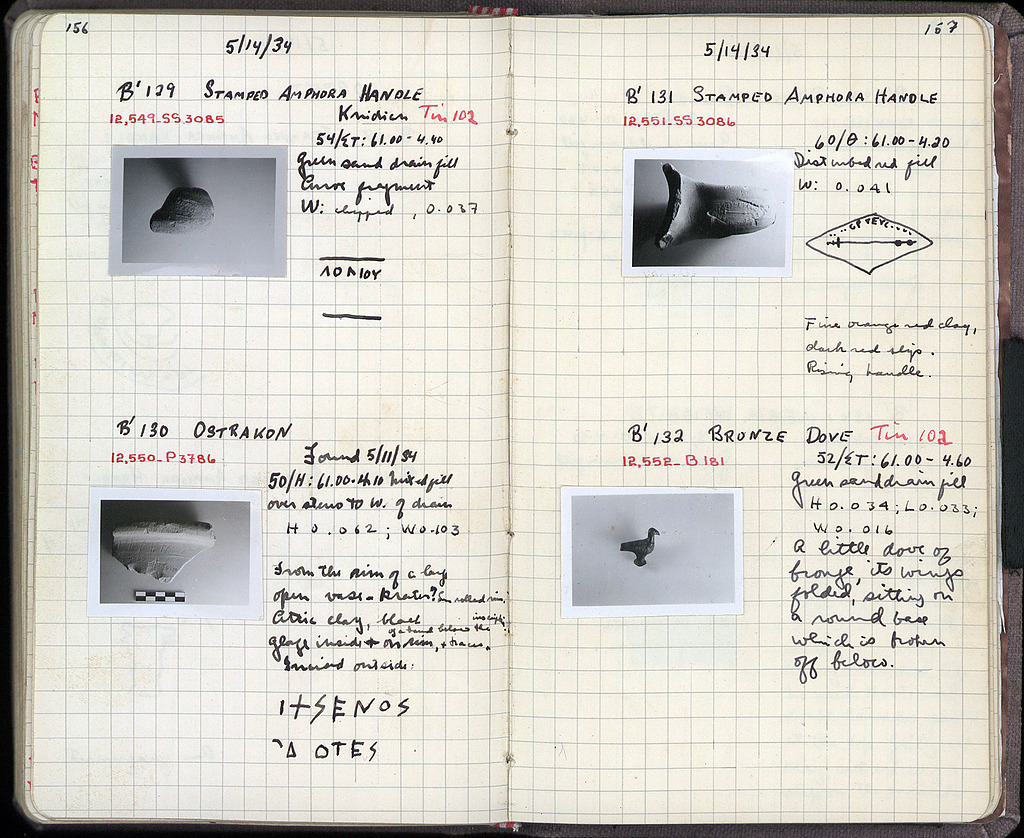 156
5/14/34
B' 129 STAMPED AMPHORA HANDLE
Knidian Tin 102
12,549-SS 3085
54/ΣΤ: 61.00 - 4.40
Green sand drain fill
Curve fragment
W: chipped, 0.037
B' 130 OSTRAKON
12,550-P 3786
Found 5/11/34
50/H: 61.00-4.10 Mixed fill
over steno to W. of drain
H 0.062; W 0.103
From the rim of a large
open vase - krater?
Attic clay, black
of a band below the
glaze inside + on rim, + traces
Incised outside:
167
5/14/34
B' 131 STAMPED AMPHORA HANDLE
12,551-SS 3086
60/Θ: 61.00 - 4.20
Disturbed red fill
W: 0.041
Fine orange red clay,
dark red slip.
Rising handle.
B' 132 BRONZE DOVE Tin 102
12,552-B 181
52/ΣΤ: 61.00 - 4.60
Green sand drain fill
H 0.034; L 0.033;
W 0.016
A little dove of
bronze, its wings
folded, sitting on
a round base
which is broken
off below.